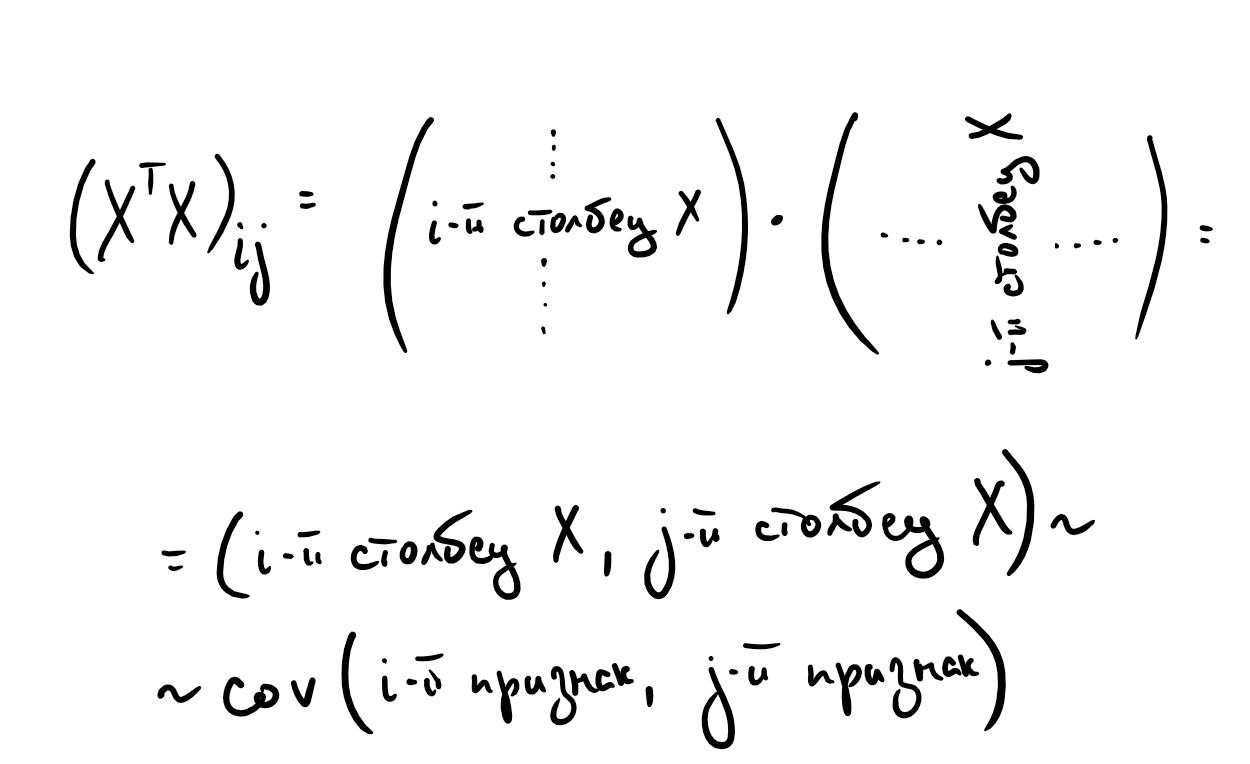 (XᵀX)ᵢⱼ = (i-й столбец X) · (..... j-й столбец X .....) =
= (i-й столбец X, j-й столбец X) ~
~ cov (i-й признак, j-й признак)